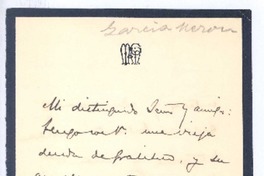 Garcia Merou
Mi distinguido Señor y amigo:
Tengo con V. una vieja
deuda de gratitud, y su